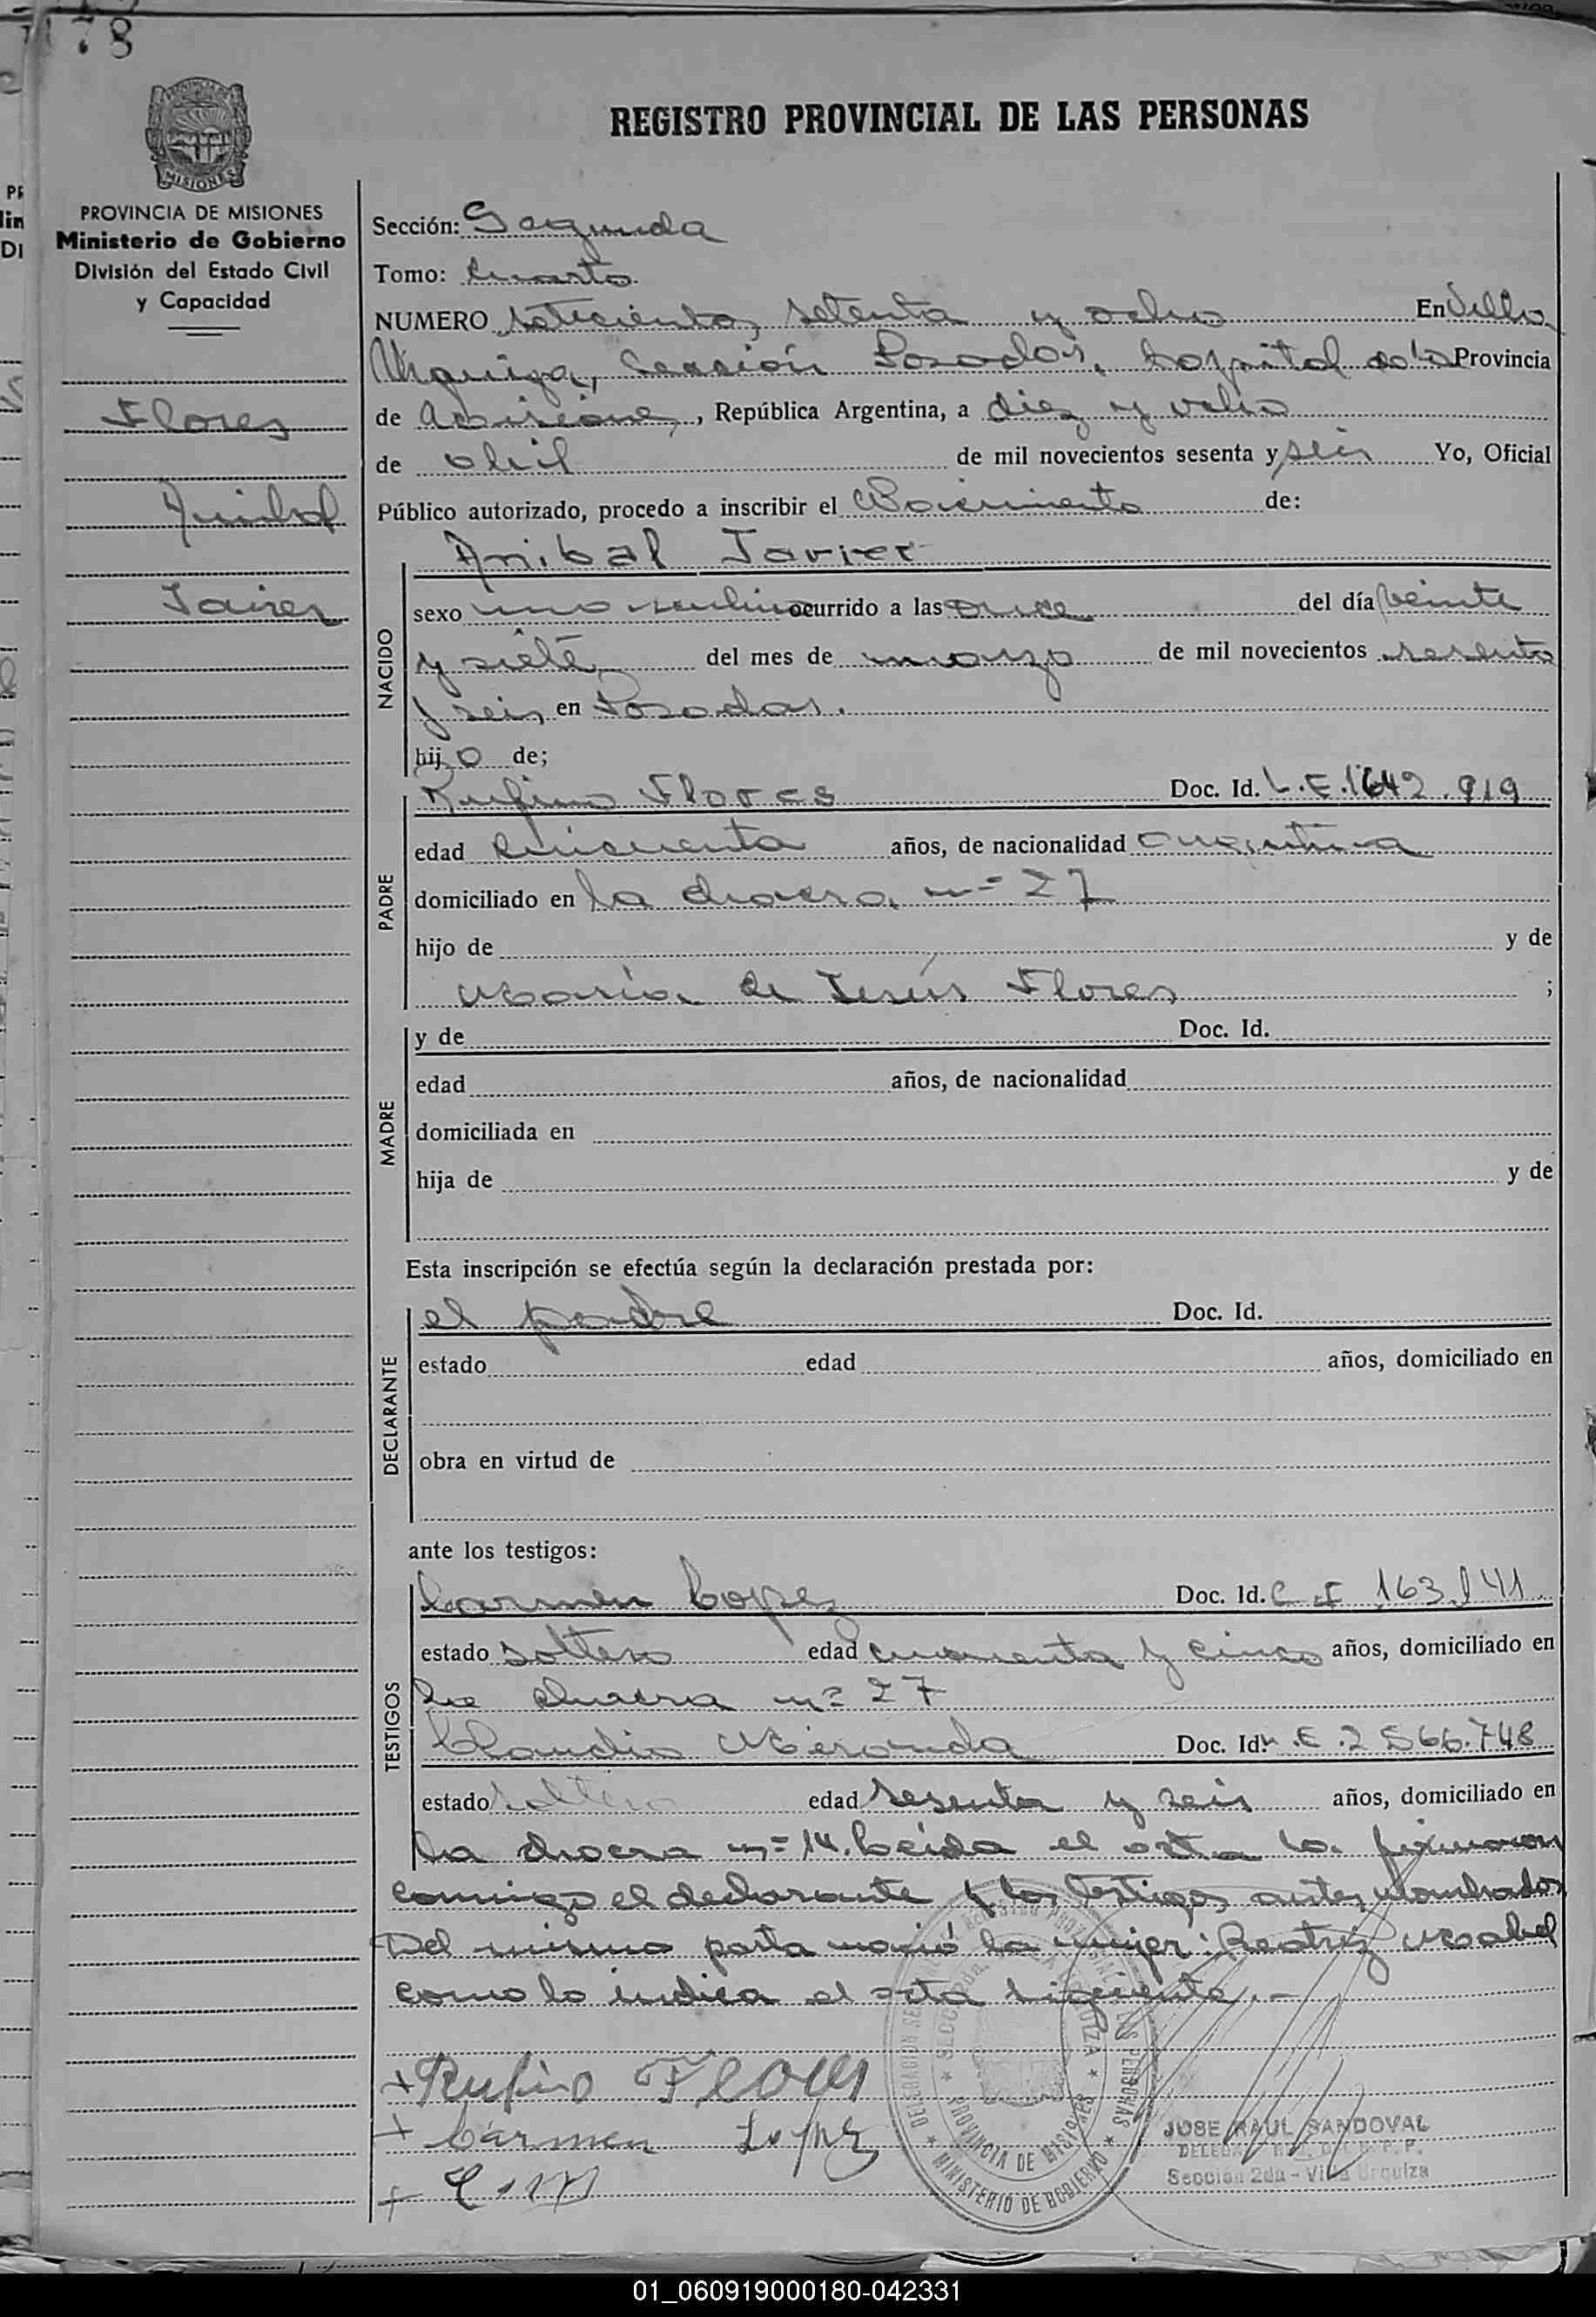 178
REGISTRO PROVINCIAL DE LAS PERSONAS
MISIONES
PROVINCIA DE MISIONES
Ministerio de Gobierno
División del Estado Civil
y Capacidad
Flores
Anibal
Javier
Sección: Segunda
Tomo: Cuarto
NUMERO setecientos setenta y ocho En Villa
Urquiza, Sección Posadas, Capital de la Provincia
de Misiones, República Argentina, a diez y ocho
de abril de mil novecientos sesenta y seis Yo, Oficial
Público autorizado, procedo a inscribir el Nacimiento de:
NACIDO
Anibal Javier
sexo masculino ocurrido a las once del día veinte
y siete del mes de marzo de mil novecientos sesenta
y seis en Posadas.
hijo de;
PADRE
Rufino Flores Doc. Id. L.E.1642.919
edad cincuenta años, de nacionalidad argentina
domiciliado en la chacra nº 27
hijo de y de
María de Jesús Flores ;
MADRE
y de Doc. Id.
edad años, de nacionalidad
domiciliada en
hija de y de
Esta inscripción se efectúa según la declaración prestada por:
DECLARANTE
el padre Doc. Id.
estado edad años, domiciliado en
obra en virtud de
ante los testigos:
TESTIGOS
Carmen Lopez Doc. Id. C I 163.141
estado soltero edad cuarenta y cinco años, domiciliado en
la chacra nº 27
Claudio Miranda Doc. Id. L.E.2566.748
estado soltero edad sesenta y seis años, domiciliado en
la chacra nº 14. Leída el acta la firmaron
conmigo el declarante y los testigos antes nombrados
Del mismo parto nació la mujer: Beatriz Isabel
como lo indica el acta siguiente.-
+Rufino Flores
+ Cármen Lopez
+
MINISTERIO DE GOBIERNO
PROVINCIA DE MISIONES
JOSE RAUL SANDOVAL
Sección 2da - Villa Urquiza
01_060919000180-042331